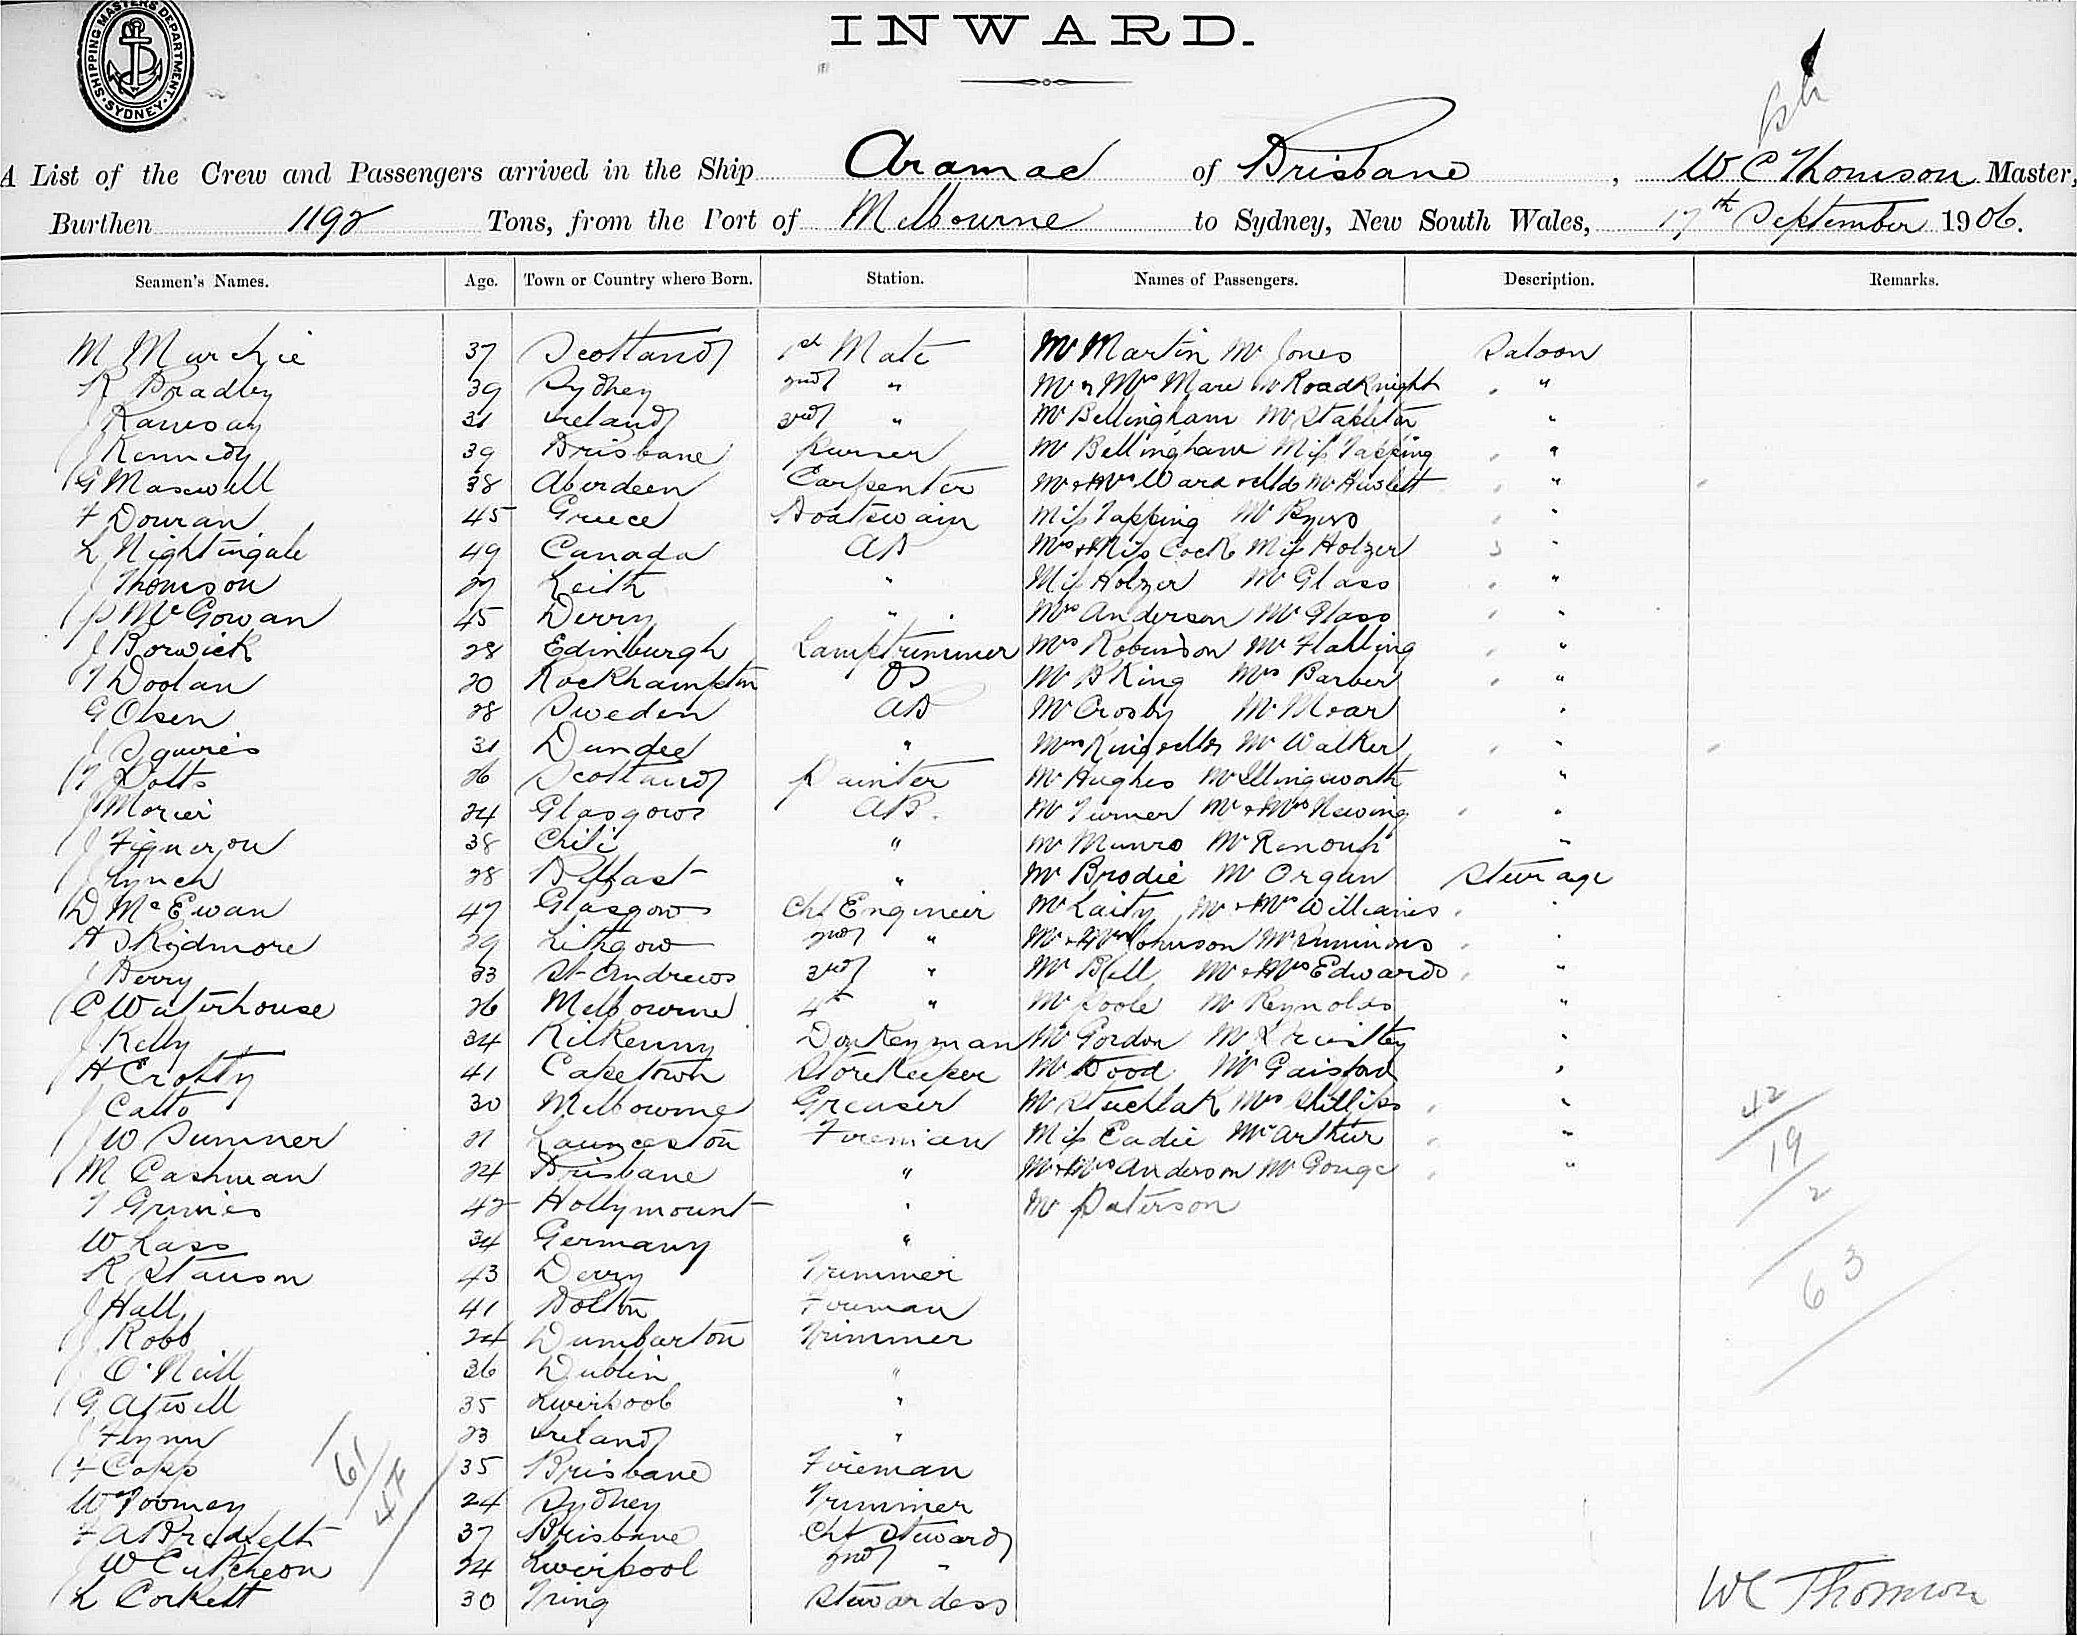 SHIPPING MASTERS DEPARTMENT. SYDNEY.
INWARD.
A List of the Crew and Passengers arrived in the Ship Aramac of Brisbane, W C Thomson Master,
Burthen 1192 Tons, from the Port of Melbourne to Sydney, New South Wales, 17th September 1906.
Seamen's Names. Age. Town or Country where Born. Station. Names of Passengers. Description. Remarks.
M Murchie 37 Scotland 1st Mate Mr Martin Mr Jones Saloon
R Bradley 39 Sydney 2nd " Mr & Mrs Mare Roadknight "
J Ramsay 31 Ireland 3rd " Mr Bellingham Mr Stapleton "
J Kennedy 39 Brisbane Purser Mr Bellingham Miss Tapping "
G Maxwell 38 Aberdeen Carpenter Mr & Mrs Ward & chld Mr Hewlett "
F Douran 45 Greece Boatswain Miss Tapping Mr Byers "
L Nightingale 49 Canada AB Mrs & Miss Cock Miss Holzer "
J Thomson 27 Leith " Miss Holzer Mr Glass "
P McGowan 45 Derry " Mrs Anderson Mr Glass "
J Borwick 28 Edinburgh Lamptrimmer Mrs Robinson Mr "
T Doolan 20 Rockhampton OS Mr B King Mrs Barber "
G Olsen 28 Sweden AB Mr Crosby Mr Moar "
J Squires 31 Dundee " Mrs King & chld Mr Walker "
T Potts 26 Scotland Painter Mr Hughes Mr Illingworth "
J Morier 24 Glasgow AB. Mr Turner Mr & Mrs Newing "
J Figuerjou 38 Chili " Mr Munro Mr Renouf "
J Lynch 28 Belfast " Mr Brodie Mr Organ Steerage
D McEwan 47 Glasgow Chf Engineer Mr Laity Mr & Mrs Williams "
A Skidmore 29 Lithgow 2nd " Mr & Mrs Johnson Mr Simmons "
J Berry 33 St Andrews 3rd " Mr Bell Mr & Mrs Edwards "
C Waterhouse 26 Melbourne 4th " Mr Poole Mr Reynolds "
J Kelly 34 Kilkenny Donkeyman Mr Gordon Mr "
H Crofty 41 Capetown Storekeeper Mr Dood Mr Gaisford "
J Catto 30 Melbourne Greaser Mr Mrs Phillips "
J W Sumner 21 Launceston Fireman Miss Eadie McArthur "
M Cashman 24 Brisbane " Mr & Mrs Anderson Mr Gouge "
T Grimes 42 Hollymount " Mr Paterson
W Lass 34 Germany "
R Stauson 43 Derry Trimmer
J Hall 41 Bolton Fireman
J Robb 24 Dumbarton Trimmer
J O'Neill 36 Dublin "
G Atwell 35 Liverpool "
J Flynn 23 Ireland "
F Capp 35 Brisbane Fireman
W Toomey 24 Sydney Trimmer
F A 37 Brisbane Chf Steward
J W Cutcheon 24 Liverpool 2nd "
L Corkett 30 Tring Stewardess
61
42
19
2
63
WC Thomson